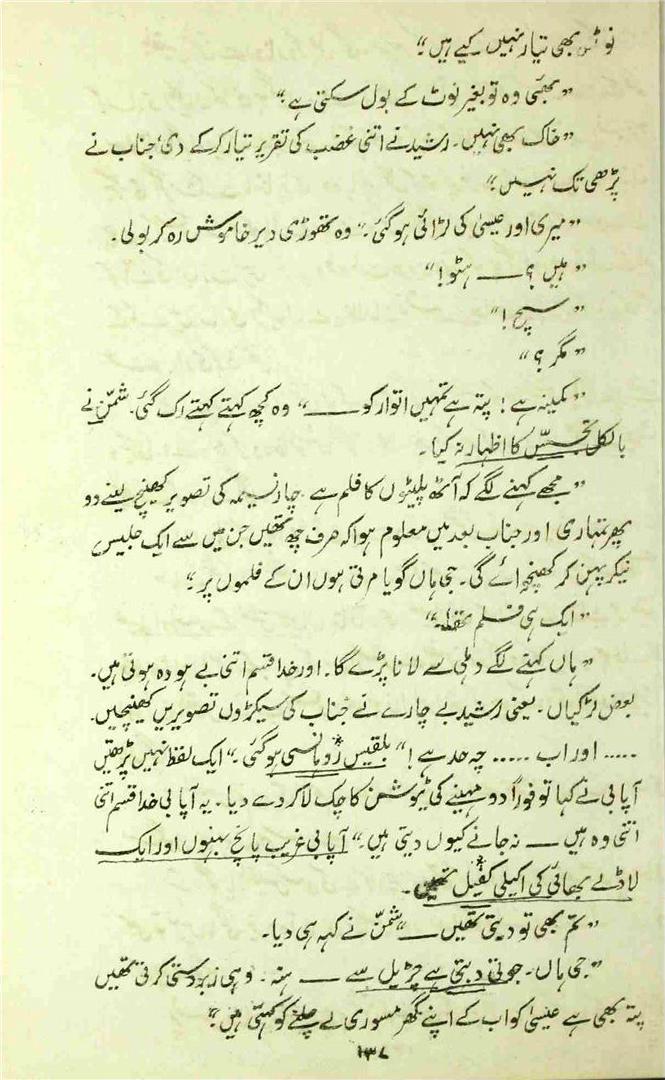 نوٹ بھی تیار نہیں کیے ہیں۔“
”بھئی وہ تو بغیر نوٹ کے بول سکتی ہے“
”خاک بھی نہیں۔ رشید نے اتنی غضب کی تقریر تیار کر کے دی، جناب نے
پڑھی تک نہیں۔“
”میری اور عیسیٰ کی لڑائی ہوگئی۔“ وہ تھوڑی دیر خاموش رہ کر بولی۔
”ہیں؟ —— ہٹو!“
”سچ!“
”مگر؟“
”کمینہ ہے! پتہ ہے تمہیں اتوار کو ——“ وہ کچھ کہتے کہتے رک گئی۔ شمّن نے
بالکل تجسّس کا اظہار نہ کیا۔
”مجھے کہنے لگے کہ آٹھ پلیٹوں کا فلم ہے۔ چار نسیمہ کی تصویر کھینچ لینے دو
پھر تمہاری اور جناب بعد میں معلوم ہوا کہ صرف چھ تھیں جن میں سے ایک جلیس
نیکر پہن کر کھنچوائے گی۔ جی ہاں گویا مرتی ہوں ان کے فلموں پر۔“
”ایک ہی فلم تھا۔“
”ہاں کہنے لگے دہلی سے لانا پڑے گا۔ اور خدا قسم اتنی بے ہودہ ہوتی ہیں۔
بعض لڑکیاں۔ یعنی رشید بے چارے نے جناب کی سیکڑوں تصویریں کھینچیں۔
..... اور اب ..... چہ حد ہے!“ بلقیس روہانسی* ہوگئی۔ ”ایک لفظ نہیں پڑھتیں
آپا بی نے کہا تو فوراً دو مہینے کی ٹیوشن کا چک لا کر دے دیا۔ یہ آپا بی خدا قسم اتنی
اتنی وہ ہیں —— نہ جانے کیوں دیتی ہیں۔“ آپا بی غریب پانچ بہنوں اور ایک
لاڈلے بھائی کی اکیلی کفیل* تھیں۔
”تم بھی تو دیتی تھیں ——“ شمّن نے کہہ ہی دیا۔
”جی ہاں۔ جوتی دیتی ہے چڑیل سے —— ہنہ۔ وہی زبردستی کرتی تھیں
پتہ بھی ہے عیسیٰ کو اب کے اپنے گھر مسوری لے چلنے کو کہتی ہیں۔“
۱۳۷